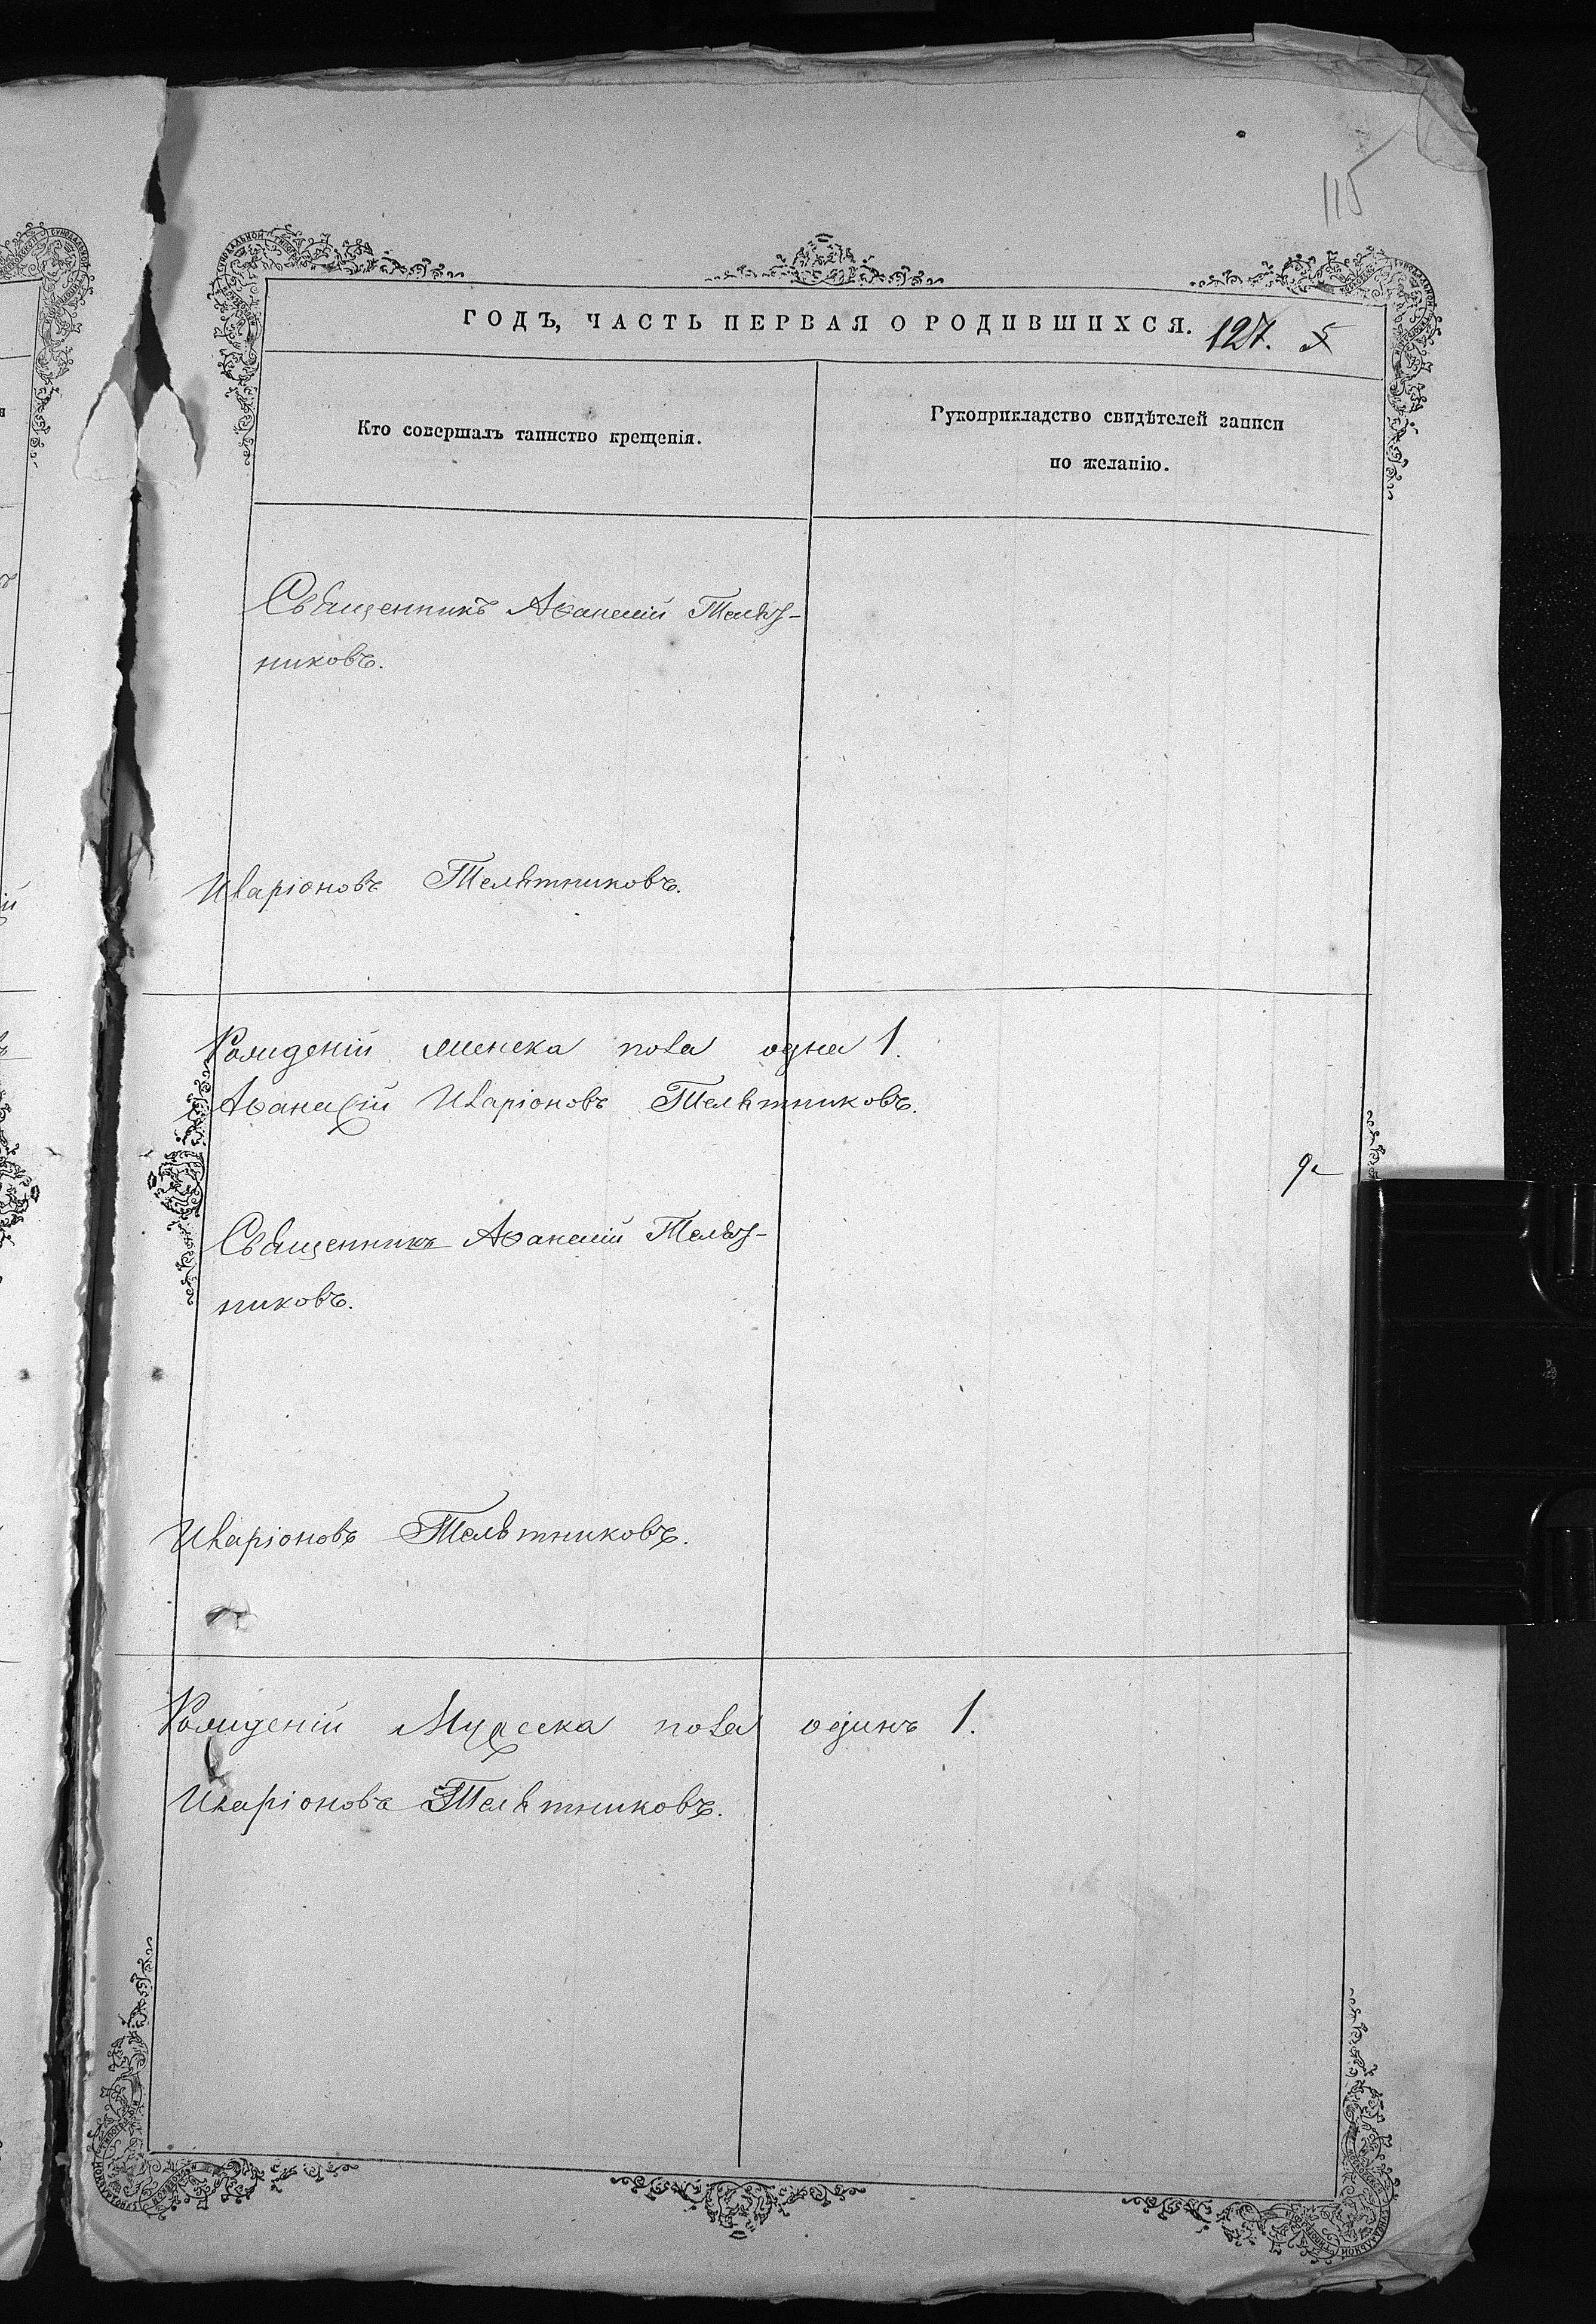 115
ГОДЪ, ЧАСТЬ ПЕРВАЯ О РОДИВШИХСЯ. 127. 5
Кто совершалъ таинство крещенія.
Рукоприкладство свидѣтелей записи
по желанію.
Священникъ Аѳанасій Телѣт-
никовъ.
Иларіоновъ Телѣтниковъ.
Рожденій женска пола одна 1.
Аѳанасій Иларіоновъ Телѣтниковъ.
Священникъ Аѳанасій Телѣт-
никовъ.
Иларіоновъ Телѣтниковъ.
Рожденій Мужеска пола одинъ 1.
Иларіоновъ Телѣтниковъ.